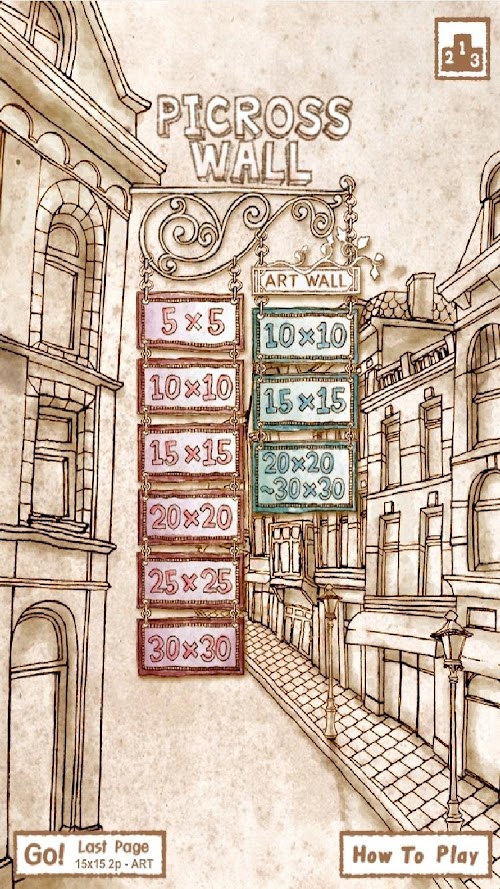 1
2 3
PICROSS
WALL
ART WALL
5×5
10×10
15×15
20×20
25×25
30×30
10×10
15×15
20×20
~30×30
Go! Last Page
15x15 2p - ART
How To Play